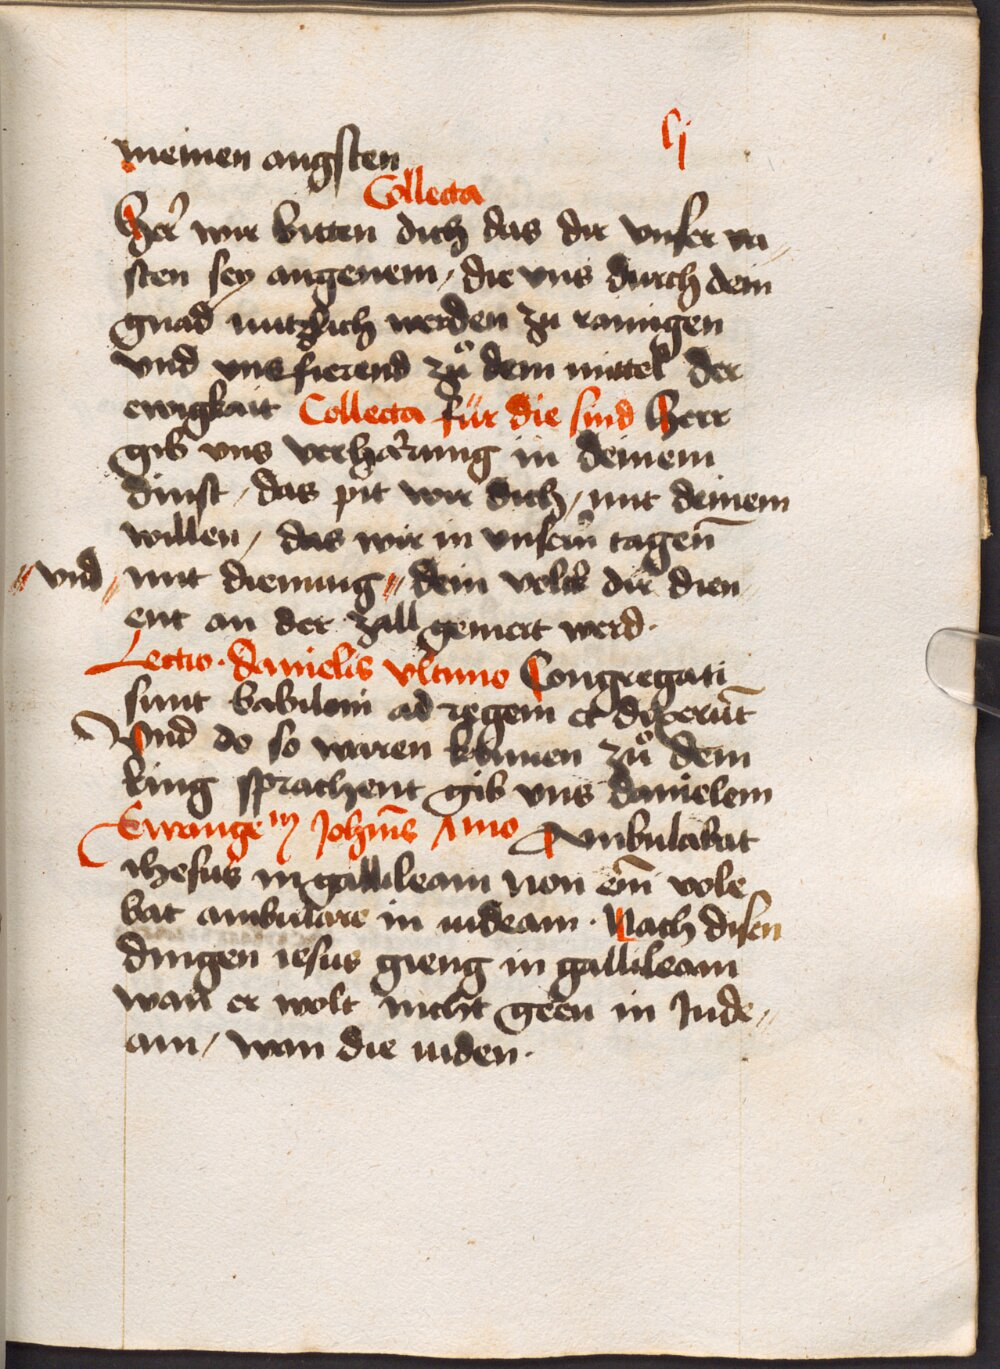 lj
meinen angsten
Collecta
Her̄ wir bitten dich das dir vnser va„
sten sey angenem / die vns durch dein
gnad nutzlich werden zu rainigen
vnd vns fierend zuͦ dem mittel der
ewigkait Collecta für die sind Herr
gib vns verharrung in deinem
dinst / das pit wir dich / mit deinem
willen / das wir in vnsern tagen̄
„ vnd „ mit dienung „ dein volck dir dien
ent an der zall gemert werd.
Lectio . danielis vltimo Congregati
sunt babiloni ad regem et dixerūt
Vnd do so waren kumen zuͦ dem
king sprachent gib vns danielem
Ewangeᵐ Joh̄nis Ambulabat
ihesus in gallileam non em̄ vole
bat ambulare in iudeam . Nach disen
dingen iesus gieng in gallileam
wan̄ er wolt nicht geen in Jude„
am / wan die iuden .